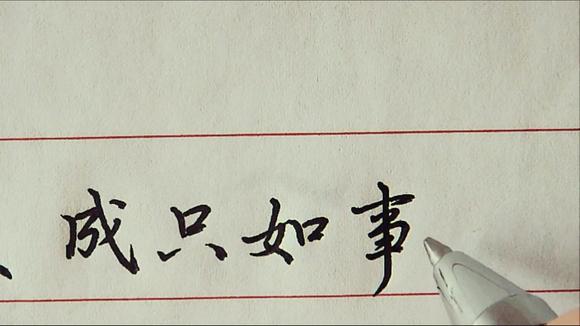 成只如事